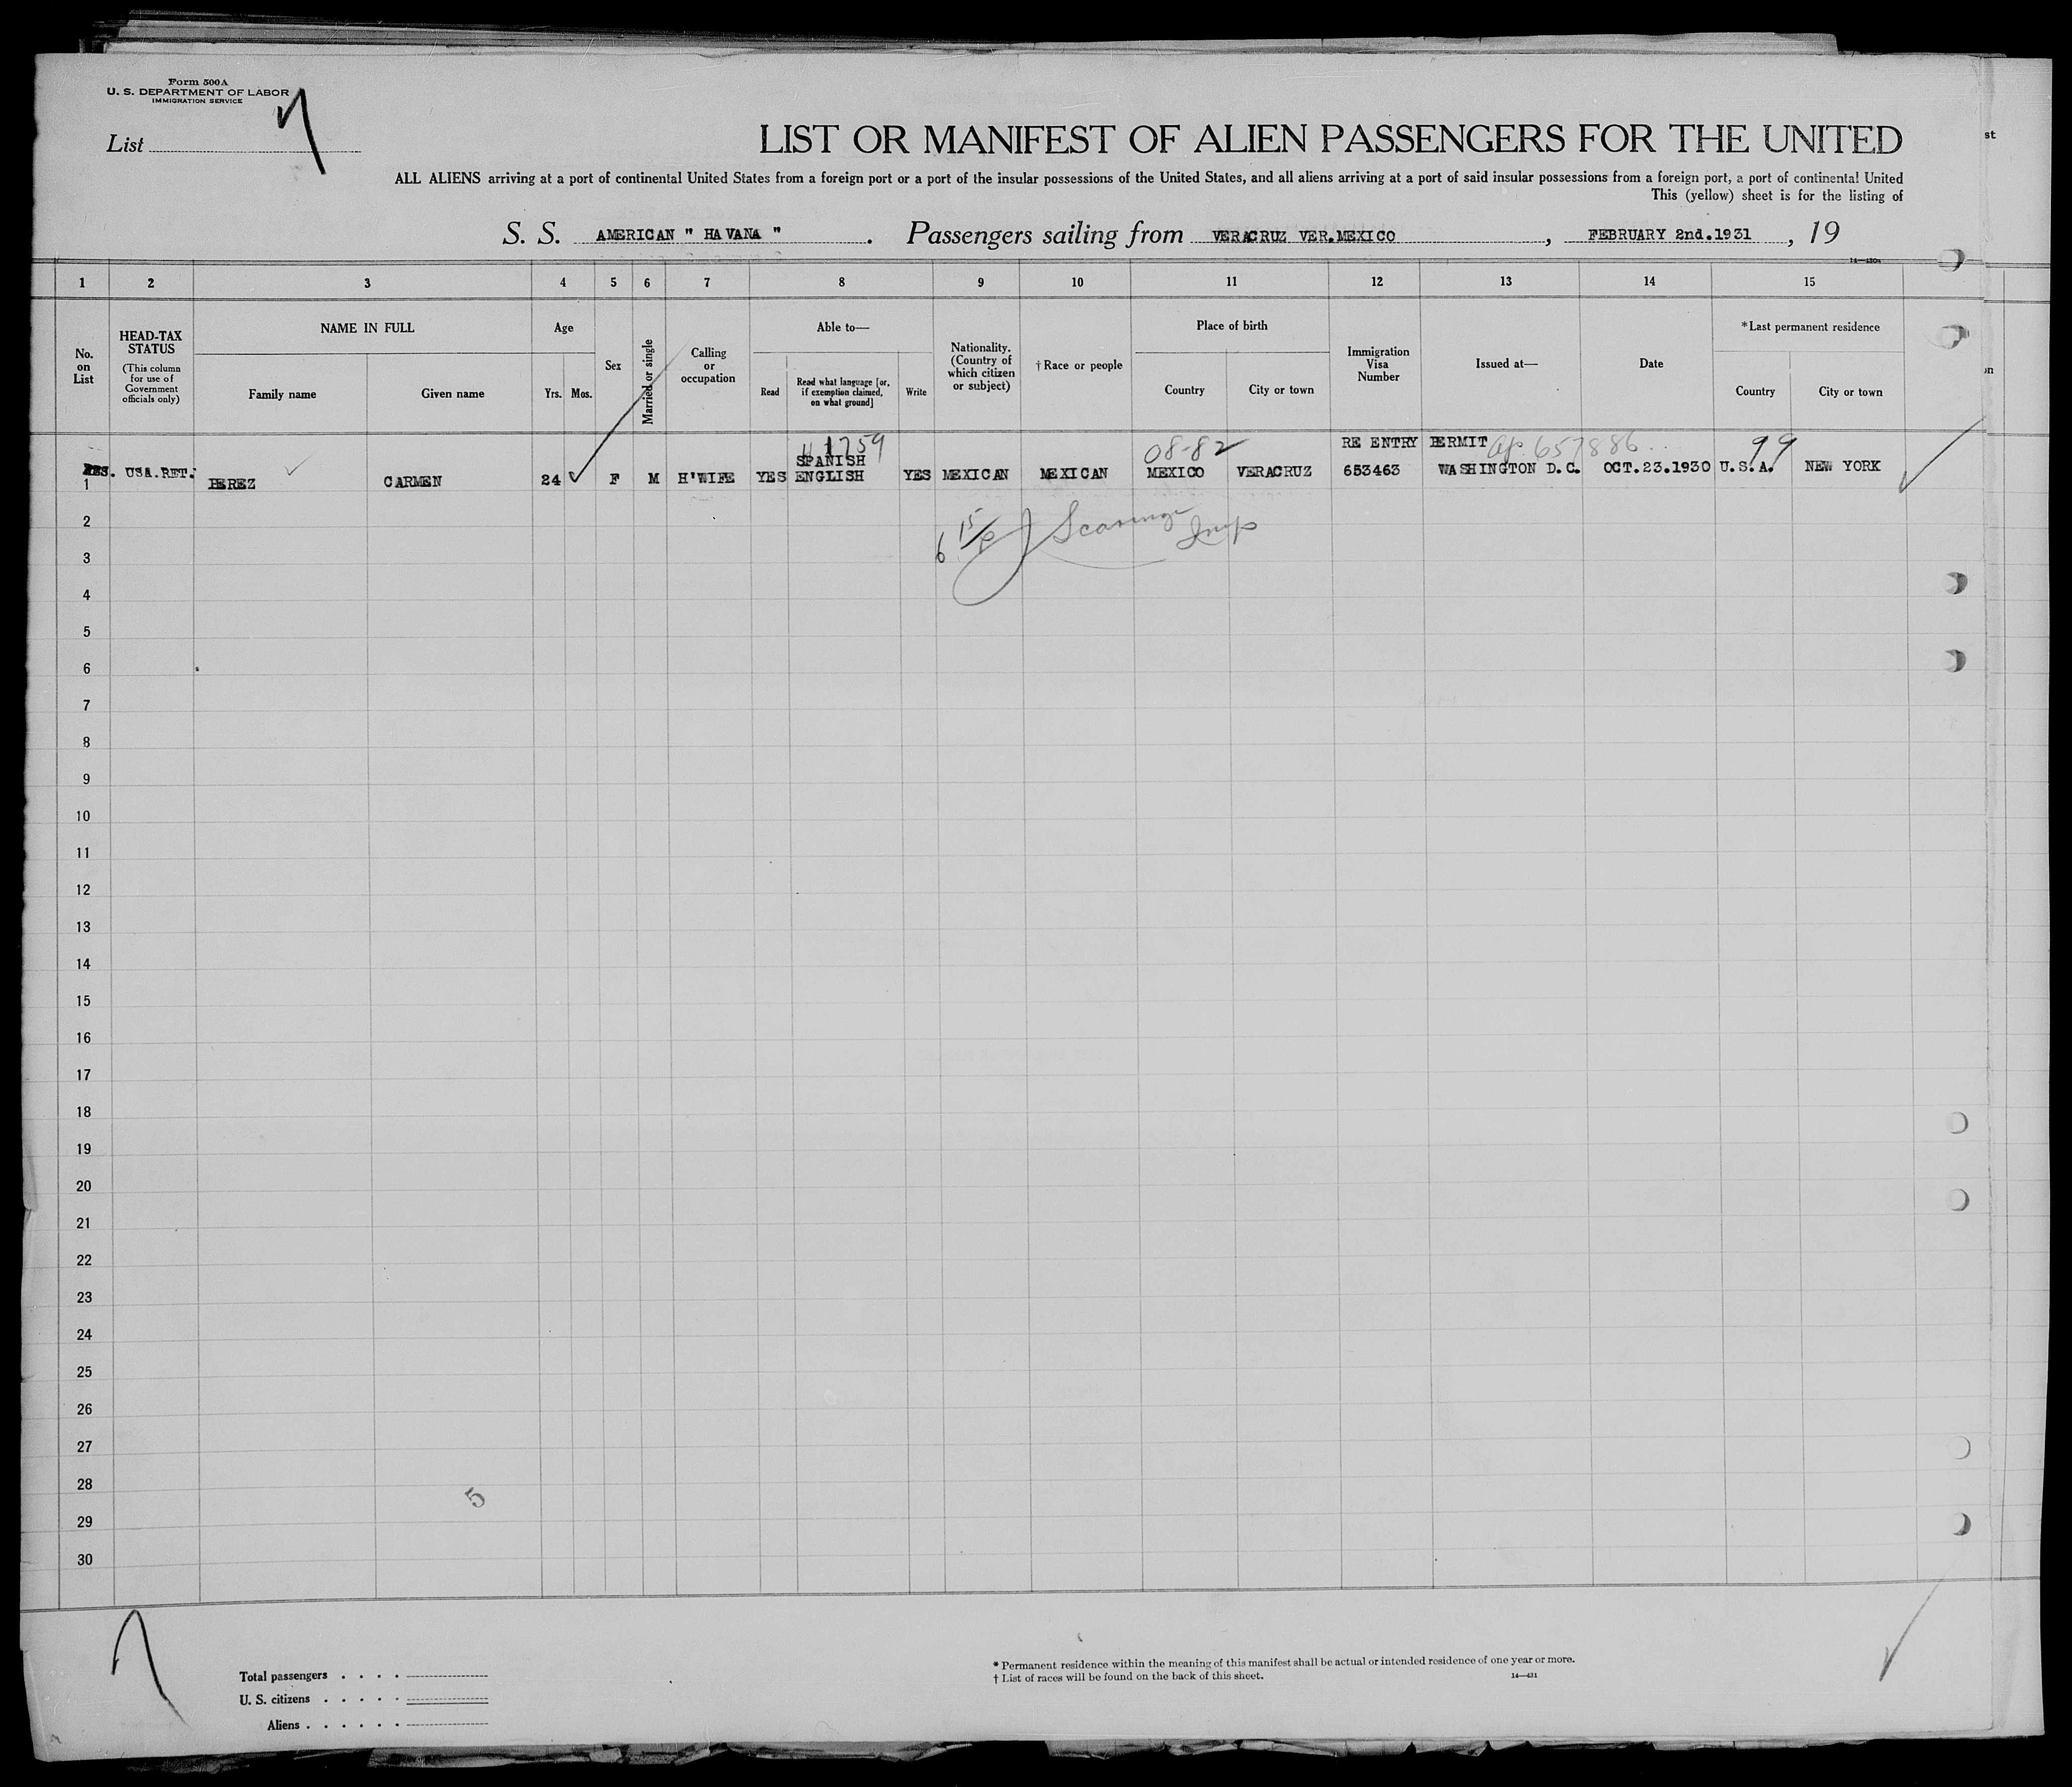 Form 500A
U. S. DEPARTMENT OF LABOR
IMMIGRATION SERVICE
List 7
LIST OR MANIFEST OF ALIEN PASSENGERS FOR THE UNITED
ALL ALIENS arriving at a port of continental United States from a foreign port or a port of the insular possessions of the United States, and all aliens arriving at a port of said insular possessions from a foreign port, a port of continental United
This (yellow) sheet is for the listing of
S. S. AMERICAN " HAVANA ". Passengers sailing from VERACRUZ VER.MEXICO, FEBRUARY 2nd.1931, 19
1 2 3 4 5 6 7 8 9 10 11 12 13 14 15
No. on List
HEAD-TAX STATUS
(This column for use of Government officials only)
NAME IN FULL
Family name
Given name
Age
Yrs. Mos.
Sex
Married or single
Calling or occupation
Able to—
Read
Read what language [or, if exemption claimed, on what ground]
Write
Nationality. (Country of which citizen or subject)
† Race or people
Place of birth
Country
City or town
Immigration Visa Number
Issued at—
Date
*Last permanent residence
Country
City or town
1759
08-82
RE ENTRY PERMIT 657886
99
SPANISH
1 USA.RET. PEREZ CARMEN 24 F M H'WIFE YES ENGLISH YES MEXICAN MEXICAN MEXICO VERACRUZ 653463 WASHINGTON D.C. OCT.23.1930 U.S.A. NEW YORK
2
3
4
5
6
7
8
9
10
11
12
13
14
15
16
17
18
19
20
21
22
23
24
25
26
27
28
5
29
30
Total passengers . . . .
U. S. citizens . . . . .
Aliens . . . . . .
* Permanent residence within the meaning of this manifest shall be actual or intended residence of one year or more.
† List of races will be found on the back of this sheet.
14—431